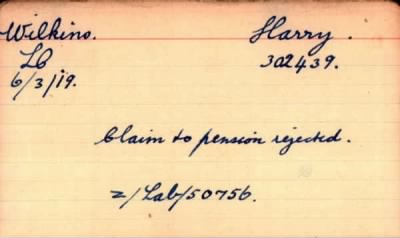 Wilkins. Harry.
LC 302439.
6/3/19.
Claim to pension rejected.
2/Lab/50756.